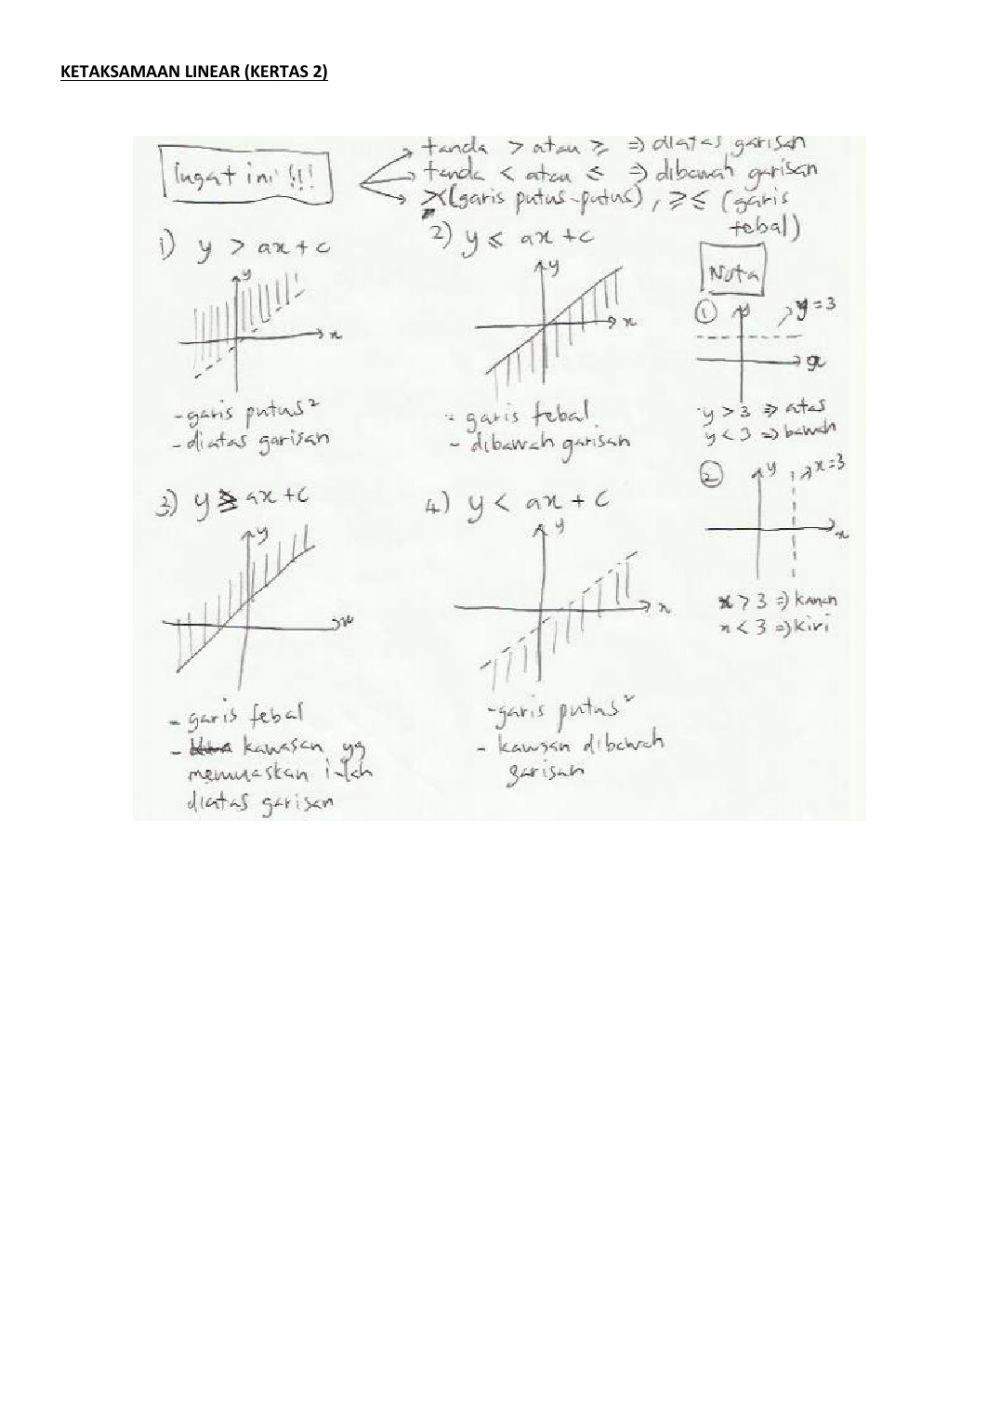 KETAKSAMAAN LINEAR (KERTAS 2)
Ingat ini !!!
tanda > atau ≥ ⇒ diatas garisan
tanda < atau ≤ ⇒ dibawah garisan
(garis putus-putus), ≥ ≤ (garis
tebal)
1) y > ax + c
y
x
- garis putus²
- diatas garisan
2) y ≤ ax + c
y
x
- garis tebal
- dibawah garisan
3) y ≥ ax + c
y
x
- garis tebal
- kawasan yg
memuaskan ialah
diatas garisan
4) y < ax + c
y
x
- garis putus²
- kawasan dibawah
garisan
Nota
①
y
y = 3
x
y > 3 ⇒ atas
y < 3 ⇒ bawah
②
y
x = 3
x
x > 3 ⇒ kanan
x < 3 ⇒ kiri